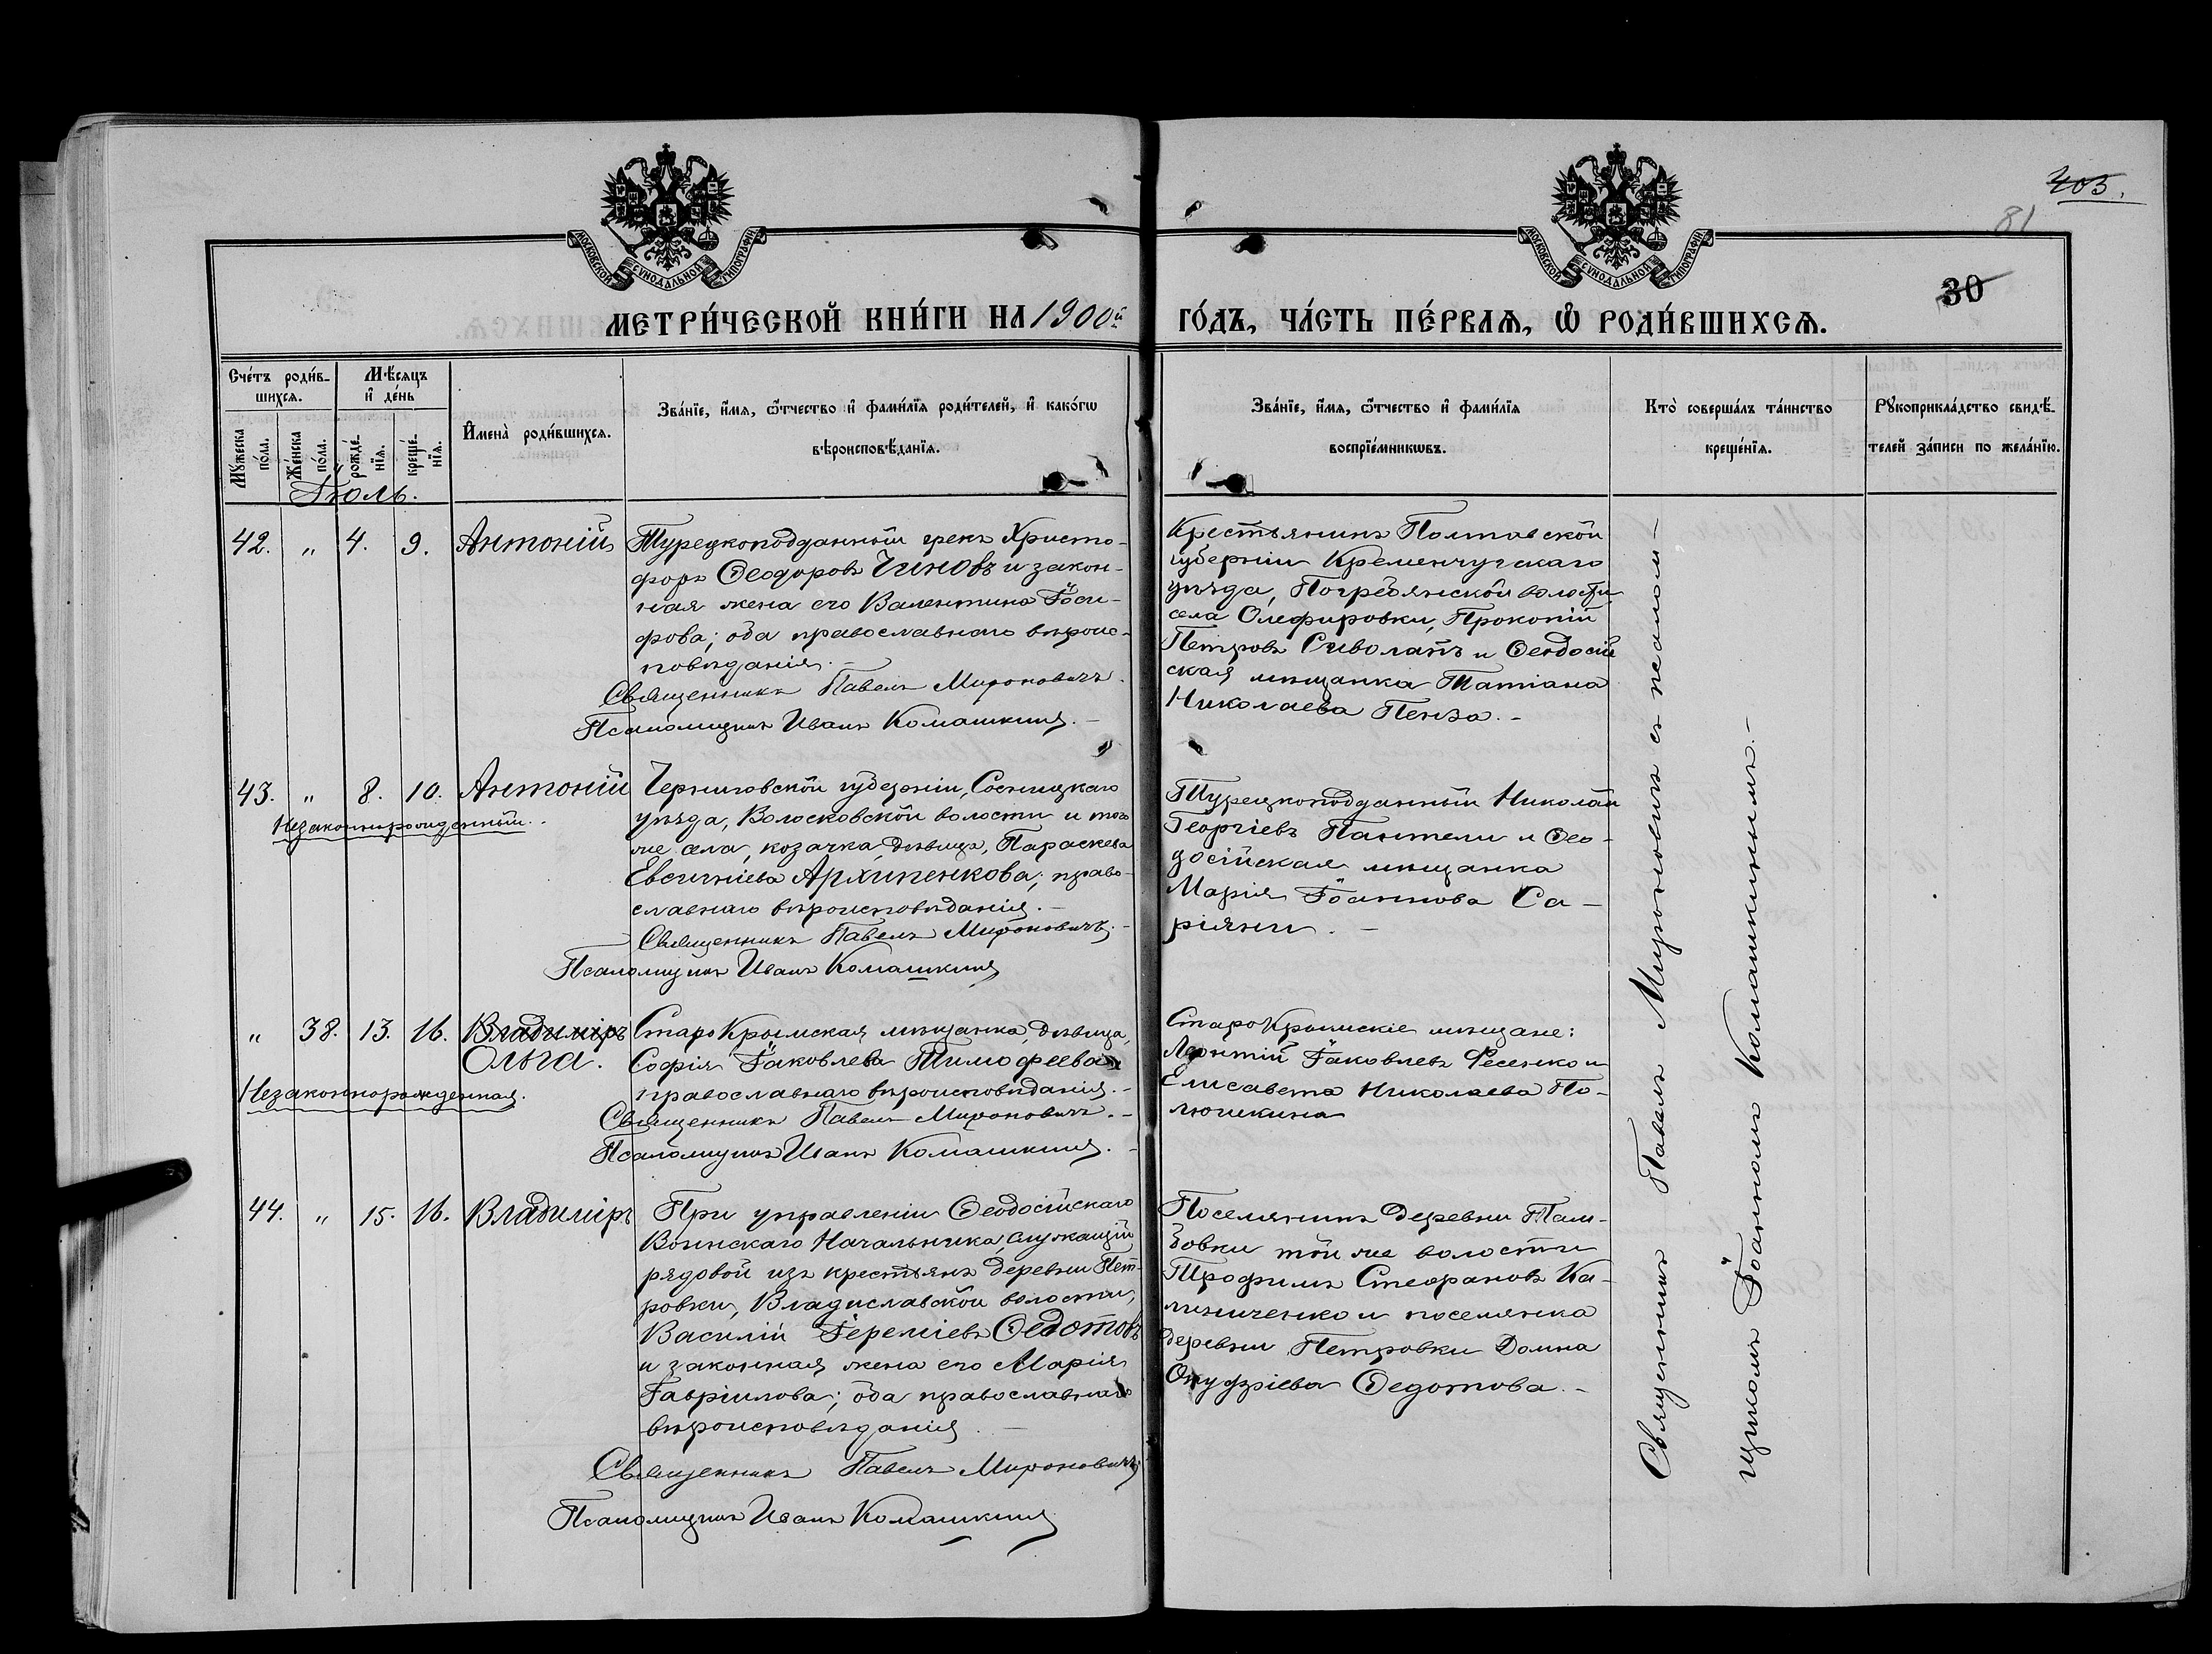 403.
81
30
МОСКОВСКОЙ СѴНОДАЛЬНОЙ ТИПОГРАФІИ
МОСКОВСКОЙ СѴНОДАЛЬНОЙ ТИПОГРАФІИ
МЕТРИ́ЧЕСКОЙ КНИ́ГИ НА 1900й
ГО́ДЪ, ЧА́СТЬ ПЕ́РВАѦ, Ѡ҆ РОДИ́ВШИХСѦ.
Сче́тъ роди́в-
шихся.
Мѣ́сяцъ
и҆ де́нь
Мꙋ́жеска
по́ла.
Же́нска
по́ла.
рожде́-
нїя.
креще́-
нїя.
И҆мена̀ роди́вшихся.
Зва́нїе, и҆́мя, ѻ҆́тчество и҆ фами́лїя роди́телей, и҆ како́гѡ
вѣроисповѣ́данїя.
Зва́нїе, и҆́мя, ѻ҆́тчество и҆ фами́лїя
воспрїе́мникѡвъ.
Кто̀ соверша́лъ та́инство
креще́нїя.
Рꙋкоприкла́дство свидѣ́-
телей за́писи по жела́нїю.
Іюль.
42. " 4. 9. Антоній
Турецкоподданный грекъ Христо-
форъ Ѳеодоровъ Чиновъ и закон-
ная жена его Валентина Іоси-
фова; оба православнаго вѣроис-
повѣданія. -
Священникъ Павелъ Мироновичъ.
Псаломщикъ Иванъ Комашкинъ. -
Крестьянинъ Полтавской
губерніи Кременчугскаго
уѣзда, Погребянской волости
села Олефировки, Прокопій
Петровъ Сиволапъ и Ѳеодосій
ская мѣщанка Татіана
Николаева Пенза. -
43. " 8. 10. Антоній
Незаконнорожденный.
Черниговской губерніи, Сосницкаго
уѣзда, Волосковской волости и того
же села, козачка, дѣвица, Параскева
Евсигніева Архипенкова; право-
славнаго вѣроисповѣданія. -
Священникъ Павелъ Мироновичъ. -
Псаломщикъ Иванъ Комашкинъ
Турецкоподданный Николай
Георгіевъ Пантели и Ѳео-
досійская мѣщанка
Марія Іоаннова Са-
ріяни. -
" 38. 13. 16. Владиміръ
Ольга.
Незаконнорожденная.
Старо Крымская мѣщанка, дѣвица,
Софія Іаковлева Тимофеева
православнаго вѣроисповѣданія. -
Священникъ Павелъ Мироновичъ. -
Псаломщикъ Иванъ Комашкинъ. -
Старо Крымскіе мѣщане:
Леонтій Іаковлевъ Фесенко и
Елисавета Николаева По-
люшкина
44. " 15. 16. Владиміръ
При управленіи Ѳеодосійскаго
Воинскаго Начальника, служащій
рядовой изъ крестьянъ деревни Пет-
ровки, Владиславской волости,
Василій Іереміевъ Ѳедотовъ
и законная жена его Марія
Гавріилова; оба православнаго
вѣроисповѣданія. -
Священникъ Павелъ Мироновичъ
Псаломщикъ Иванъ Комашкинъ
Поселянинъ деревни Там-
бовки той же волости
Трофимъ Стефановъ Ка-
линиченко и поселянка
деревни Петровки Домна
Онуфріева Ѳедотова. -
Священникъ Павелъ Мироновичъ съ псалом-
щикомъ Іоанномъ Комашкинымъ. -